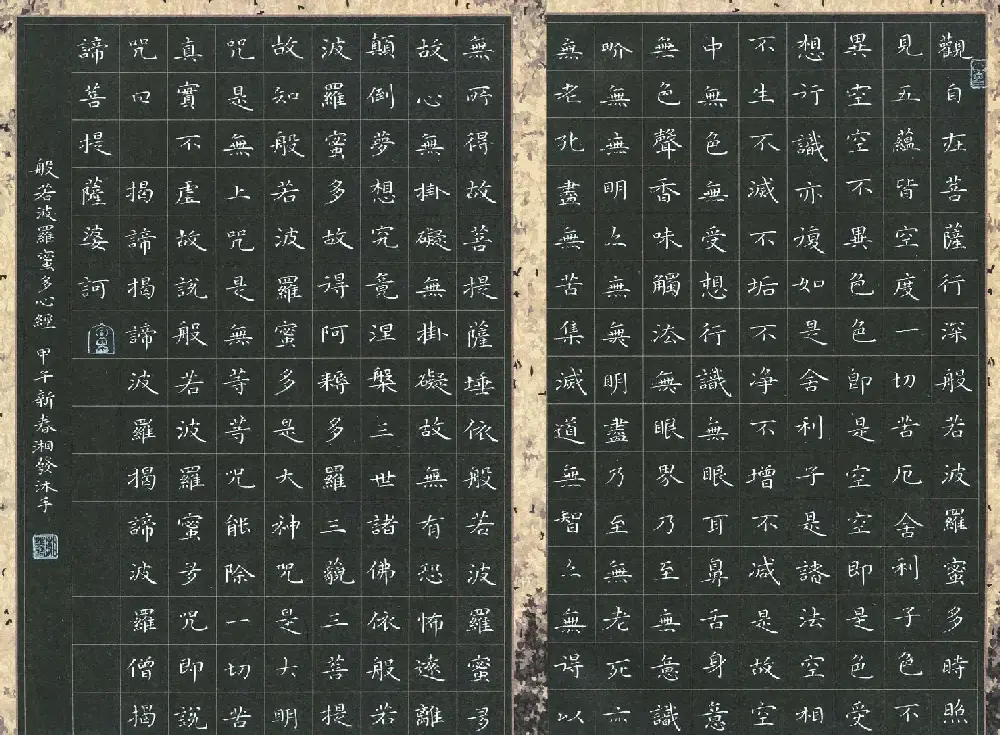 觀自在菩薩行深般若波羅蜜多時照
見五蘊皆空度一切苦厄舍利子色不
異空空不異色色即是空空即是色受
想行識亦復如是舍利子是諸法空相
不生不滅不垢不净不增不減是故空
中無色無受想行識無眼耳鼻舌身意
無色聲香味觸法無眼界乃至無意識
界無無明亦無無明盡乃至無老死亦
無老死盡無苦集滅道無智亦無得以
無所得故菩提薩埵依般若波羅蜜多
故心無掛礙無掛礙故無有恐怖遠離
顛倒夢想究竟涅槃三世諸佛依般若
波羅蜜多故得阿耨多羅三藐三菩提
故知般若波羅蜜多是大神咒是大明
咒是無上咒是無等等咒能除一切苦
真實不虛故說般若波羅蜜多咒即說
咒曰 揭諦揭諦波羅揭諦波羅僧揭
諦菩提薩婆訶
般若波羅蜜多心經 甲子新春湘發沐手